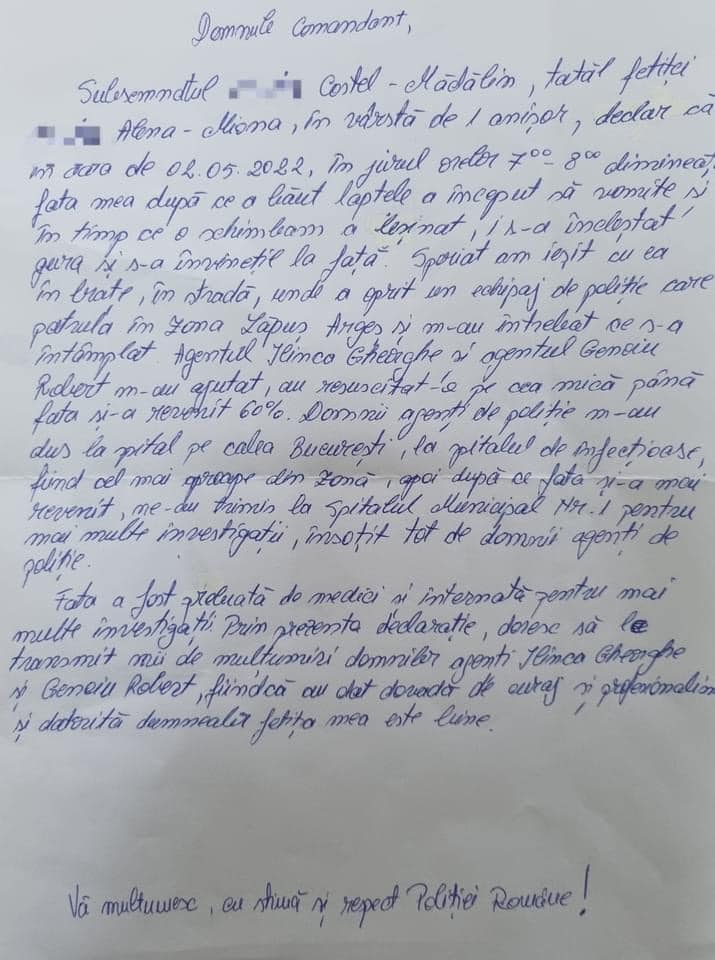 Domnule Comandant,
Subsemnatul Costel - Mădălin, tatăl fetiței
Alena - Miona, în vârstă de 1 anișor, declar că
în data de 02.05.2022, în jurul orelor 7⁰⁰ - 8⁰⁰ dimineaț
fata mea după ce a băut laptele a început să vomite și
în timp ce o schimbam a leșinat, i s-a încleștat
gura și s-a învinețit la față. Speriat am ieșit cu ea
în brate, în stradă, unde a oprit un echipaj de politie care
patrula în Zona Lăpuș Argeș și m-au întrebat ce s-a
întâmplat. Agentul Ilinca Gheorghe si agentul Genoiu
Robert m-au ajutat, au resuscitat-o pe cea mică până
fata și-a revenit 60%. Domnii agenți de poliție m-au
dus la spital pe calea București, la spitalul de infecțioase,
fiind cel mai aproape din zonă, apoi după ce fata și-a mai
revenit, ne-au trimis la Spitalul Municipal Nr. 1 pentru
mai multe investigații, însoțit tot de domnii agenți de
poliție.
Fata a fost preluată de medici si internată pentru mai
multe investigații. Prin prezenta declarație, doresc să le
transmit mii de multumiri domnilor agenti Ilinca Gheorghe
și Genoiu Robert, fiindcă au dat dovadă de curaj și profesionalism
și datorită dumnealor fetița mea este bine.
Vă multumesc, cu stimă și respect Poliției Române!